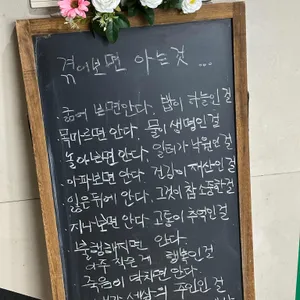 겪어보면 아는 것 ...
· 굶어 보면 안다. 밥이 하늘인걸
목마르면 안다. 물이 생명인걸
놀아보면 안다. 일터가 낙원인걸
아파보면 안다. 건강이 재산인걸
잃은 뒤에 안다. 그것이 참 소중한걸
· 지나보면 안다. 고통이 추억인걸
· 불행해지면 안다.
아주 작은게 행복인걸
죽음이 닥치면 안다.
세상의 주인인걸